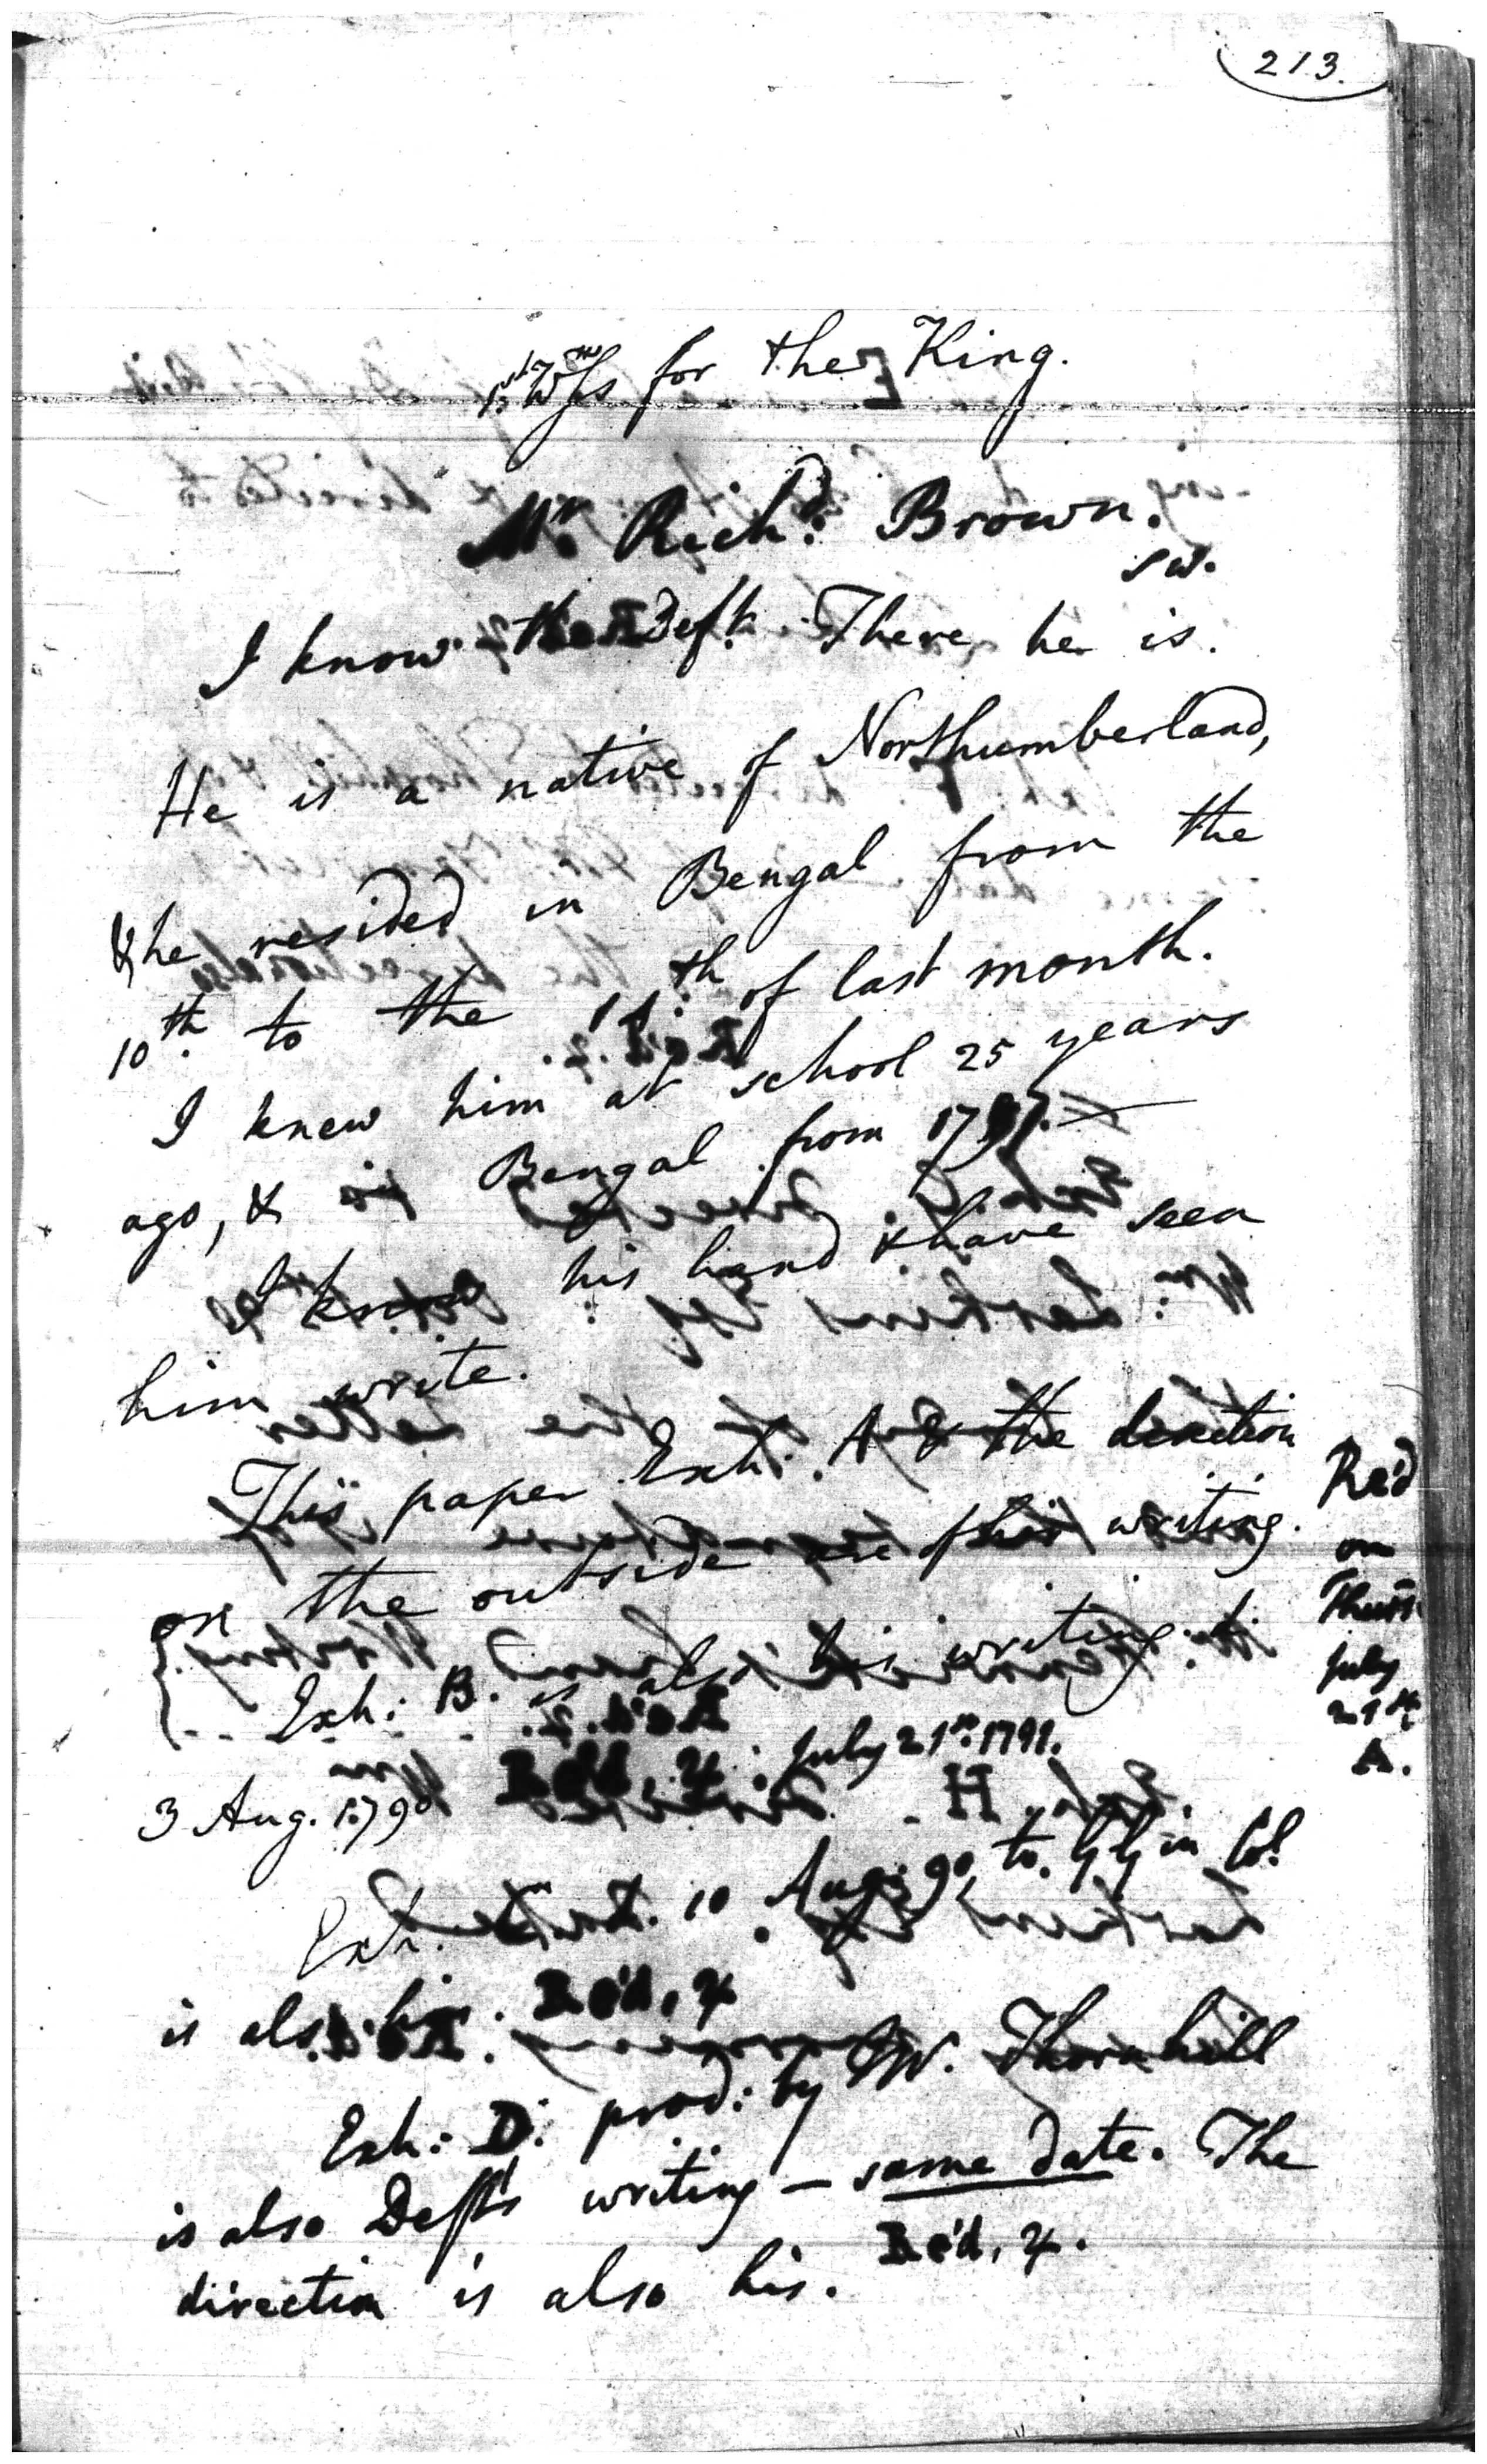 213.
1st Wss for the King.
Mr. Richd. Brown.
sw.
I know the Deft. There he is.
He is a native of Northumberland,
& he resided in Bengal from the
10th. to the of last month.
I knew him at school 25 years
ago, & in Bengal from
I know his hand & have seen
him write.
This paper Exh. A & the direction
on the outside are of his writing.
Exh: B. is also his writing
3 Aug. 1790 Re'd, July 21st. 1791.
Re'd
on
Thurs.
July
21st
A.
Exh. 10 Aug: 90, to
is also his. Re'd,
Exh: D: prod: by W. Thornhill
is also Deft's writing — same date. The
direction is also his. Re'd,